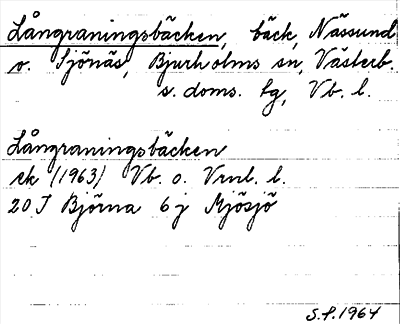 Långraningsbäcken, bäck, Nässund
o. Sjönäs, Bjurholms sn, Västerb.
s. doms. lg, Vb. l.
Långraningsbäcken
rk (1963) Vb. o. Vrnl. l.
20 J Björna 6 j Mjösjö
S.P. 1964